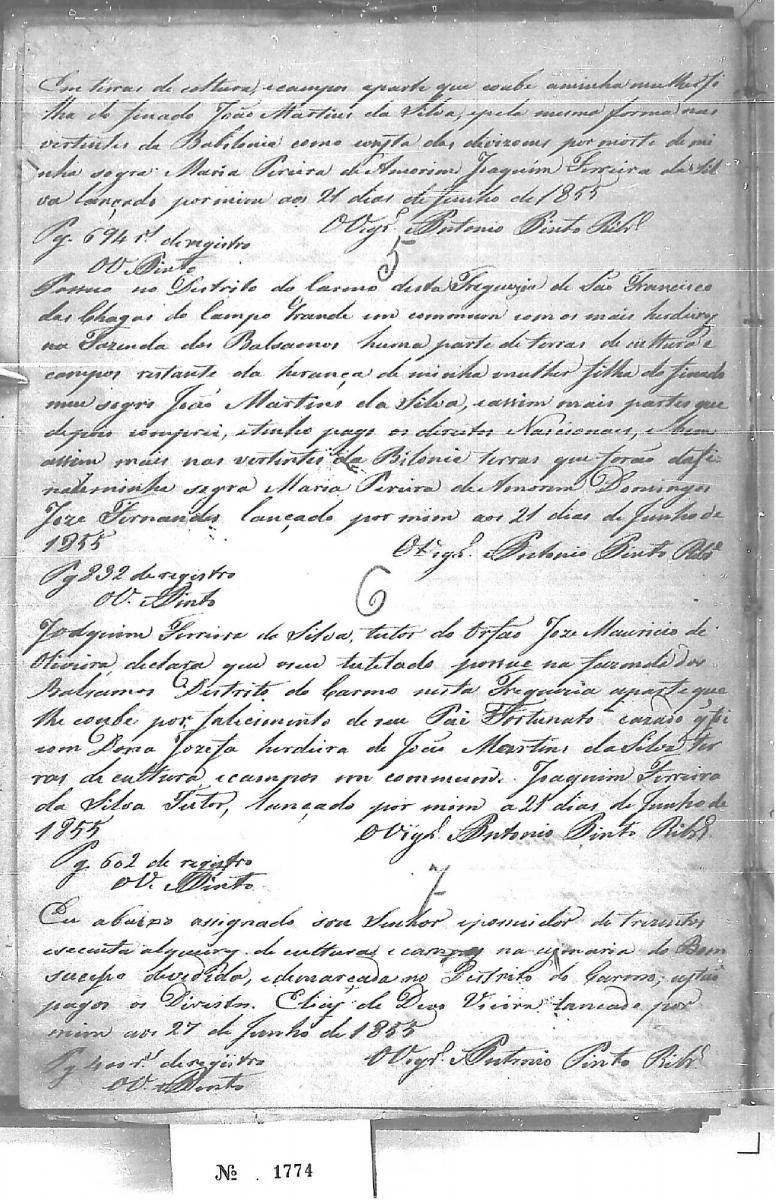 Em terras de cultura, e campos aparte que coube aminha mulher fi
lha do finado João Martins da Silva, epela mesma forma nas
vertentes da Babilonia como consta das divizoens por morte de mi
nha sogra Maria Pereira de Amorim Joaquim Ferreira da Sil
va lançado por mim aos 21 dias de Junho de 1855
Pg. 694 rs. de registro O Vigr.º Antonio Pinto Ribr.º
O V. Pinto
5
Possuo no Destrito do Carmo desta Freguezia de São Francisco
das Chagas do Campo Grande em commum com os mais herdros
na Fazenda dos Balsamos huma parte de terras de cultura e
campos restante da herança de minha mulher filha do finado
meu sogro João Martins da Silva, eassim mais partes que
depois comprei, etenho pago os direitos Nascionaes, e bem
assim mais nas vertentes da Bilonia terras que forão dafi
nada minha sogra Maria Pereira de Amorim Domingos
Joze Fernandes lançado por mim aos 21 dias de Junho de
1855 O Vigr.º Antonio Pinto Ribr.º
Pg 832 de registro
O V. Pinto
6
Joaquim Ferreira da Silva, tutor do Orfão Joze Mauricio de
Oliveira, declara que oseu tutelado possue na fazenda dos
Balsamos Destrito do Carmo nesta Freguezia aparte que
lhe coube por falicimento de seu Pai Fortunato cazado q foi
com Dona Jozefa herdeira de João Martins da Silva ter
ras de cultura ecampos em commum. Joaquim Ferreira
da Silva Tutor, lançado por mim a 21 dias de Junho de
1855 O Vigr.º Antonio Pinto Ribr.º
Pg. 602 de registro
O V. Pinto
7
Eu abaixo assignado sou Senhor epossuidor de trezentos
esecenta alqueires de culturas ecampos na cismaria do Bom
sucesso devedida, edemarcada no Destrito do Carmo, estão
pagos os Direitos. Elias de Deos Vieira lancado por
mim aos 27 de Junho de 1855
Pg 400 rs. de registro O Vigr.º Antonio Pinto Ribr.º
O V. Pinto
Nº . 1774